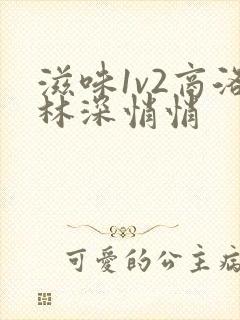 滋味1v2高洛
林深悄悄
可愛的公主病